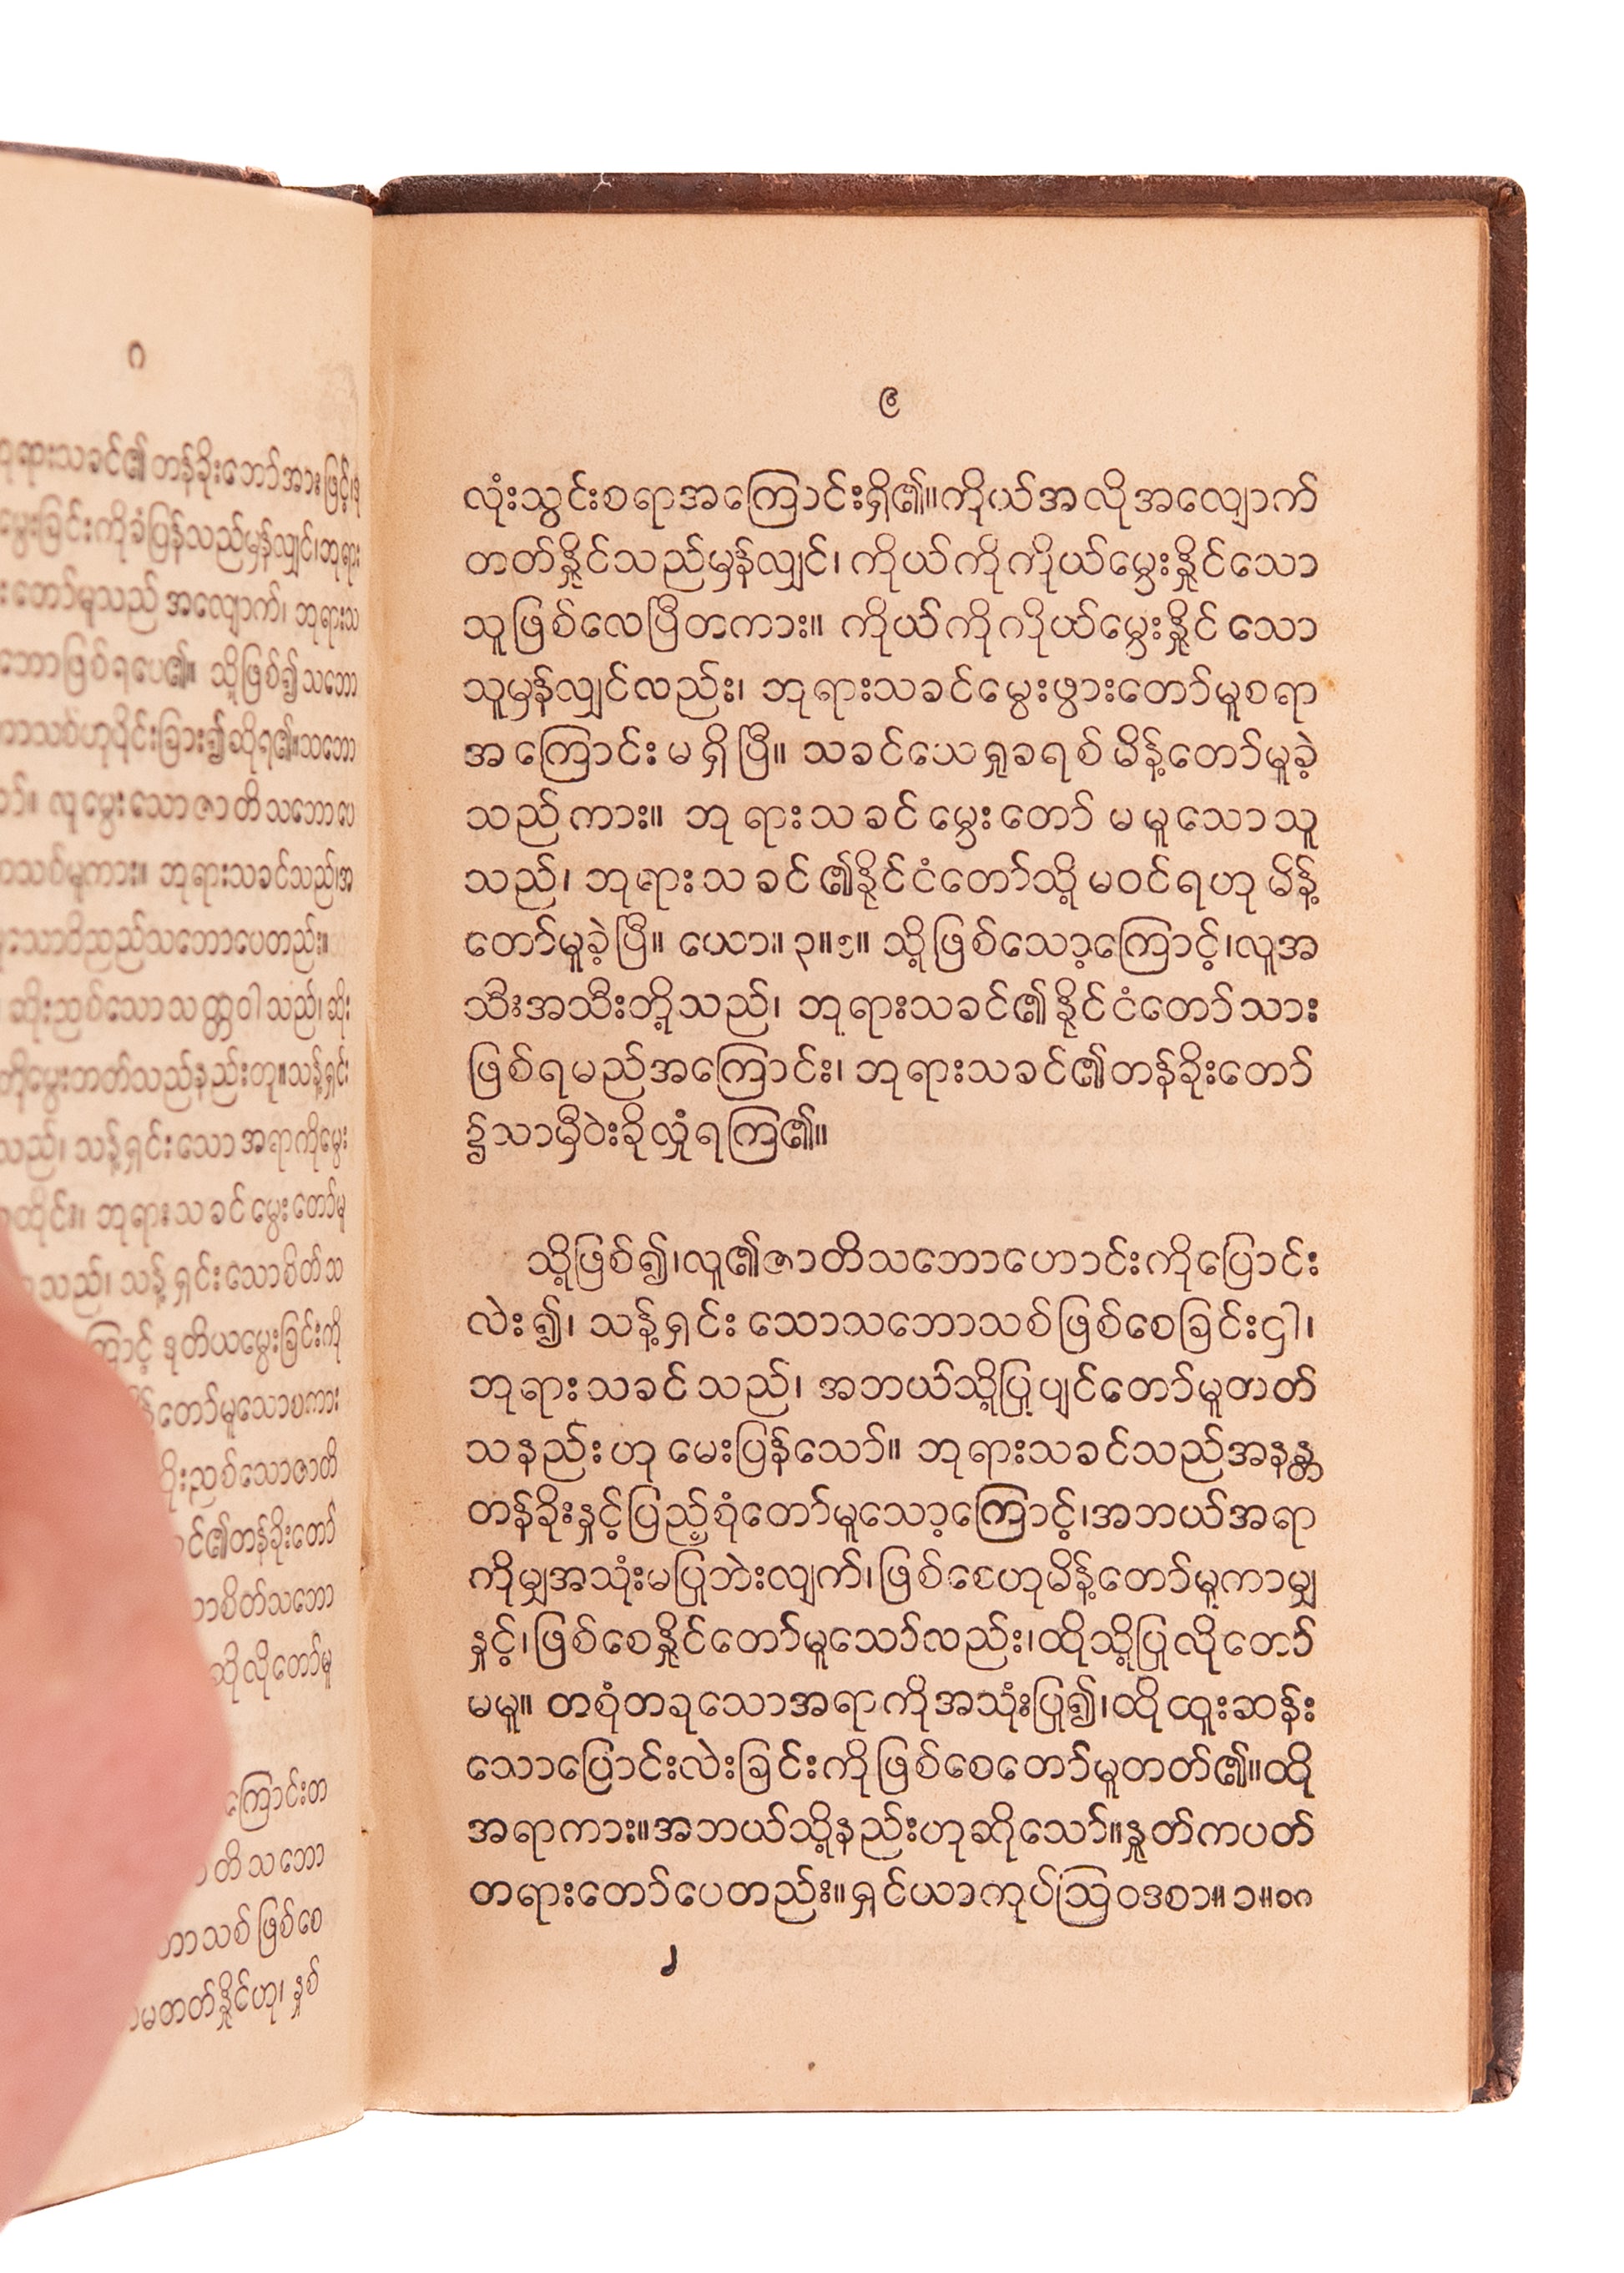 ဂ
ဘုရားသခင်၏တန်ခိုးတော်အားဖြင့်၊
မွေးခြင်းကိုခံပြန်သည်မှန်လျှင်၊ဘုရား
တော်မူသည် အလျောက်၊ ဘုရားသ
ဘောဖြစ်ရပေ၏။ သို့ဖြစ်၍သဘော
ဟုပိုင်းခြား၍ဆိုရ၏။သဘော
လူမွေးသောဇာတိသဘောလ
ကား။ ဘုရားသခင်သည်၊အ
သောဝိညည်သဘောပေတည်း။
ဆိုးညစ်သောသတ္တဝါသည်၊ဆိုး
ကိုမွေးတတ်သည်နည်းတူ။သန့်ရှင်း
သည်၊ သန့်ရှင်းသောအရာကိုမွေး
ဘုရားသခင်မွေးတော်မူ
သည်၊ သန့်ရှင်းသောစိတ်သ
ကြောင့် ဒုတိယမွေးခြင်းကို
တော်မူသောစကား
ဆိုးညစ်သောဇာတိ
ခင်၏တန်ခိုးတော်
စိတ်သဘော
ဆိုလိုတော်မူ
ကြောင်းတ
တိသဘော
သစ်ဖြစ်စေ
မတတ်နှိုင်ဟု၊ နှစ်
၉
လုံးသွင်းစရာအကြောင်းရှိ၏။ကိုယ်အလိုအလျောက်
တတ်နှိုင်သည်မှန်လျှင်၊ ကိုယ်ကိုကိုယ်မွေးနှိုင်သော
သူဖြစ်လေပြီတကား။ ကိုယ်ကိုကိုယ်မွေးနှိုင်သော
သူမှန်လျှင်လည်း၊ ဘုရားသခင်မွေးဖွားတော်မူစရာ
အကြောင်းမရှိပြီ။ သခင်ယေရှုခရစ်မိန့်တော်မူခဲ့
သည်ကား။ ဘုရားသခင်မွေးတော်မမူသောသူ
သည်၊ ဘုရားသခင်၏နိုင်ငံတော်သို့မဝင်ရဟုမိန့်
တော်မူခဲ့ပြီ။ ယော။၃။၅။ သို့ဖြစ်သော့ကြောင့်၊လူအ
သီးအသီးတို့သည်၊ ဘုရားသခင်၏နိုင်ငံတော်သား
ဖြစ်ရမည်အကြောင်း၊ ဘုရားသခင်၏တန်ခိုးတော်
၌သာမှီဝဲးခိုလှုံရကြ၏။
သို့ဖြစ်၍၊လူ၏ဇာတိသဘောဟောင်းကိုပြောင်း
လဲး၍၊ သန့်ရှင်းသောသဘောသစ်ဖြစ်စေခြင်းငှါ၊
ဘုရားသခင်သည်၊ အဘယ်သို့ပြုပျင်တော်မူတတ်
သနည်းဟုမေးပြန်သော်။ ဘုရားသခင်သည်အနန္တ
တန်ခိုးနှင့်ပြည့်စုံတော်မူသော့ကြောင့်၊အဘယ်အရာ
ကိုမျှအသုံးမပြုဘဲးလျက်၊ဖြစ်စေဟုမိန့်တော်မူကာမျှ
နှင့်၊ဖြစ်စေနှိုင်တော်မူသော်လည်း၊ထိုသို့ပြုလိုတော်
မမူ။ တစုံတခုသောအရာကိုအသုံးပြု၍၊ထိုထူးဆန်း
သောပြောင်းလဲးခြင်းကိုဖြစ်စေတော်မူတတ်၏။ထို
အရာကား။အဘယ်သို့နည်းဟုဆိုသော်။နှုတ်ကပတ်
တရားတော်ပေတည်း။ရှင်ယာကုပ်ဩဝဒစာ။၁။၁၈